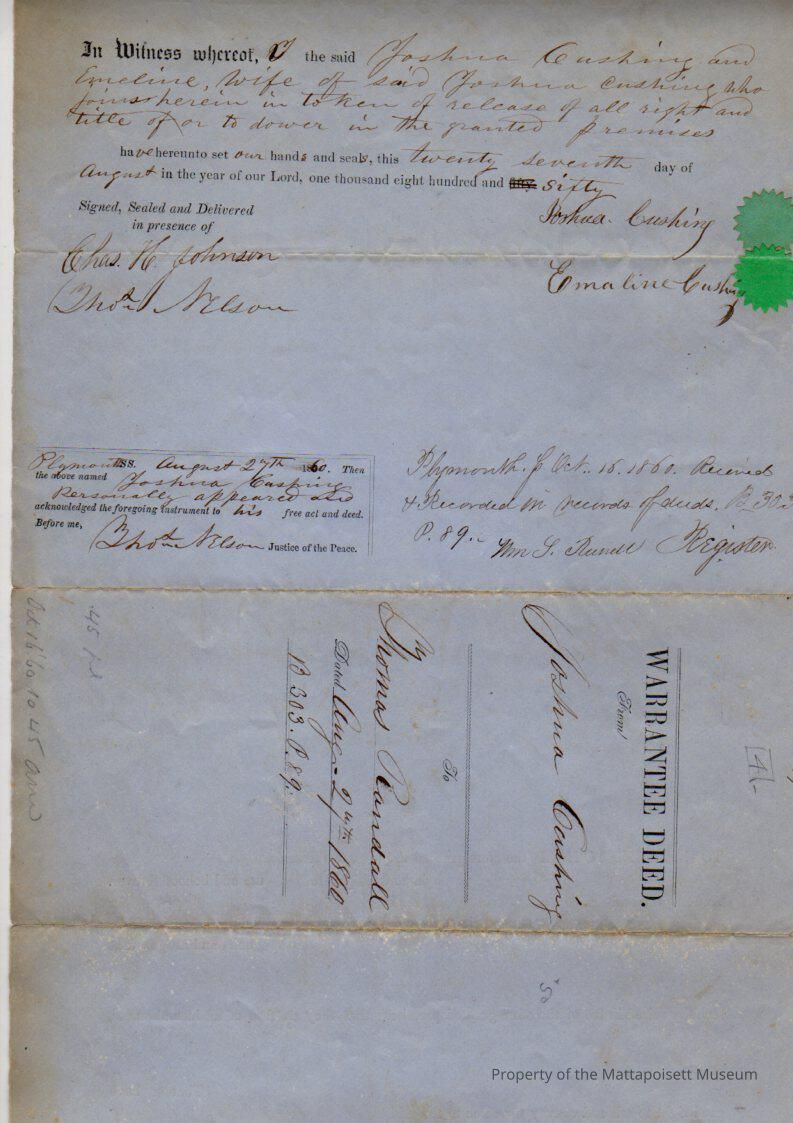 In Witness whereof, I the said Joshua Cushing and
Emeline, wife of said Joshua Cushing who
joins herein in token of release of all right and
title of or to dower in the granted premises
have hereunto set our hands and seals, this twenty seventh day of
August in the year of our Lord, one thousand eight hundred and sixty
Signed, Sealed and Delivered
in presence of
Joshua Cushing
Chas. H. Johnson
Emaline Cushing
Thos. Nelson
Plymouth SS. August 27th 1860. Then
the above named Joshua Cushing
Personally appeared and
acknowledged the foregoing instrument to his free act and deed.
Before me,
Thos. Nelson Justice of the Peace.
Plymouth. Oct. 16. 1860. Received
& Recorded in records of deeds, B. 303
P. 89.
Wm S. Register
WARRANTEE DEED.
From
Joshua Cushing
To
Thomas Randall
Dated Aug. 27th 1860
B 303. P. 89.
Oct 16 60 10 45 am
45
4
Property of the Mattapoisett Museum